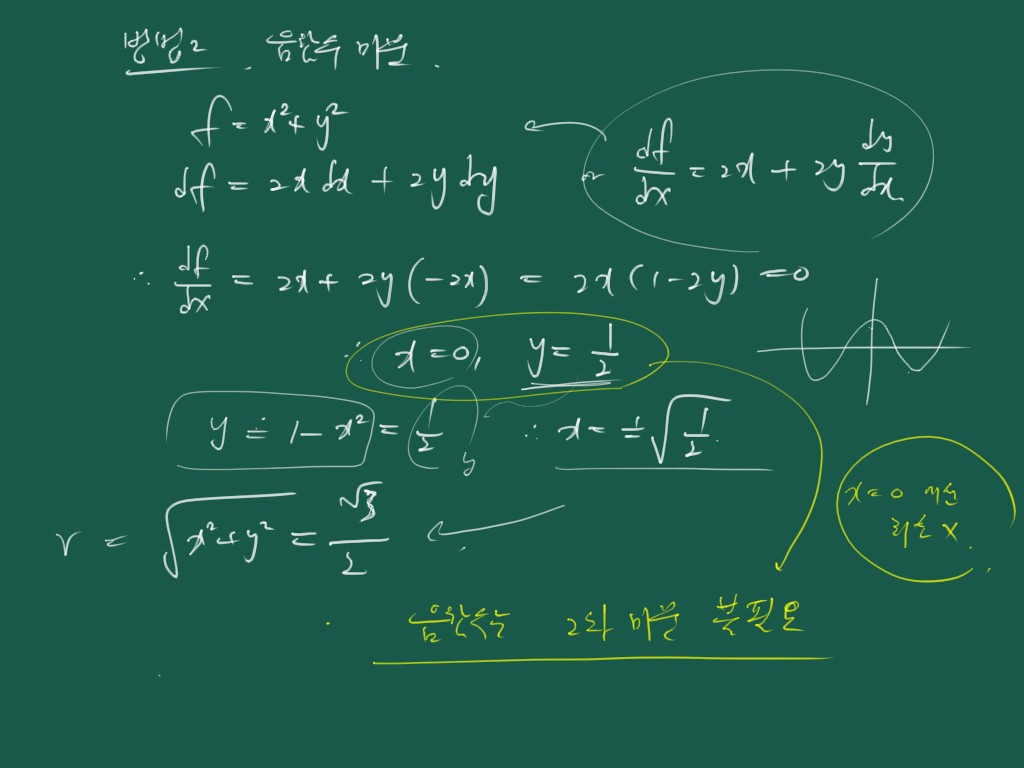 방법2. 음함수 미분.
f = x² + y²
df = 2x dx + 2y dy
or df/dx = 2x + 2y dy/dx
∴ df/dx = 2x + 2y(-2x) = 2x(1-2y) = 0
∴ x = 0, y = 1/2
y = 1 - x² = 1/2 ∴ x = ±√(1/2)
y
r = √(x²+y²) = √3/2
x = 0 에선
최소 x.
음함수는 2차 미분 불필요